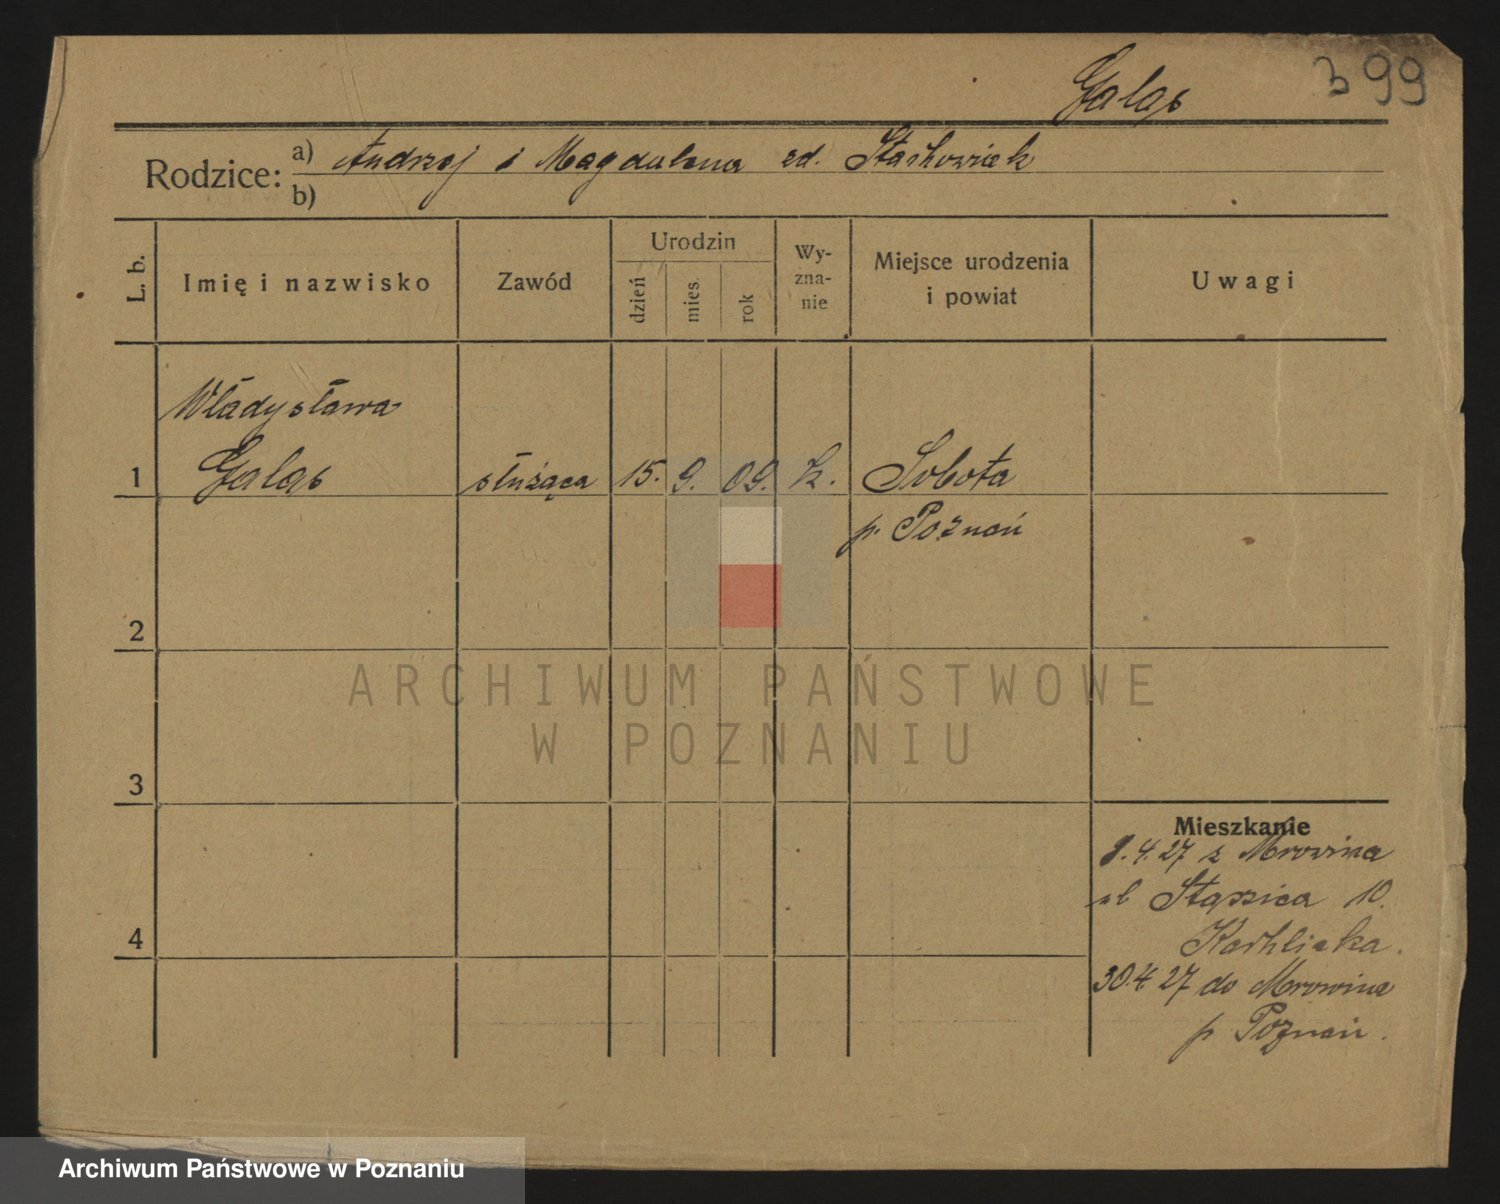 Galas 399
Rodzice: a) Andrzej i Magdalena zd. Stachowiak
b)
L. b. Imię i nazwisko Zawód Urodzin dzień mies. rok Wyznanie Miejsce urodzenia i powiat Uwagi
Władysława
1 Galas służąca 15. 9. 09. k. Sobota
p. Poznań
2
ARCHIWUM PAŃSTWOWE
W POZNANIU
3
Mieszkanie
8.4.27 z Mrowina
ul Staszica 10.
4
30.4.27 do Mrowina
p Poznań.
Archiwum Państwowe w Poznaniu